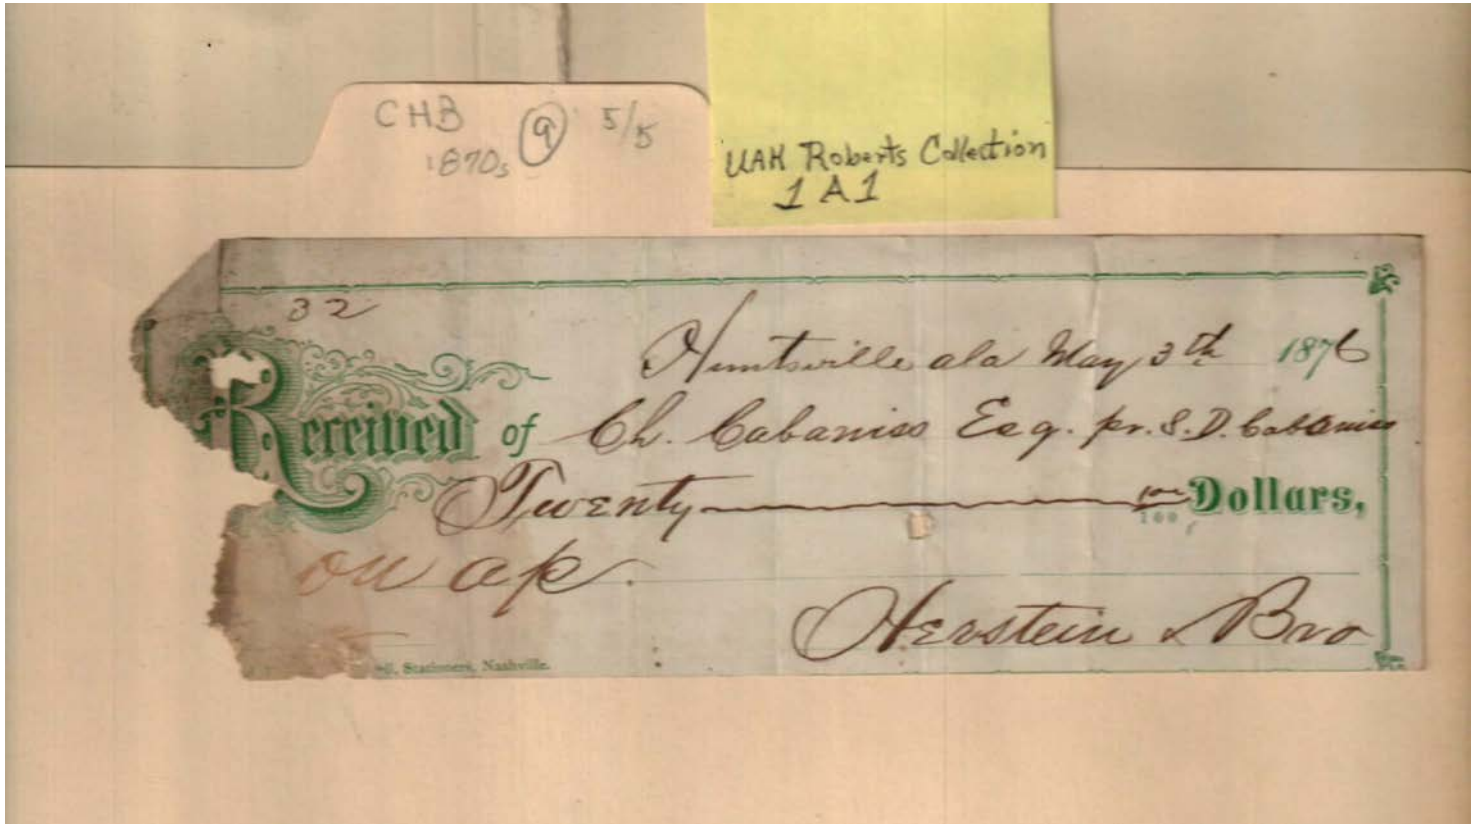 CHB 9 5/5
1870s
UAH Roberts Collection
1A1
32
Huntsville ala May 3th 1876
Received of Ch. Cabaniss Esq. pr. S. D. Cabaniss
Twenty 100 Dollars,
on a/c.
Herstein & Bro
Stationers, Nashville.